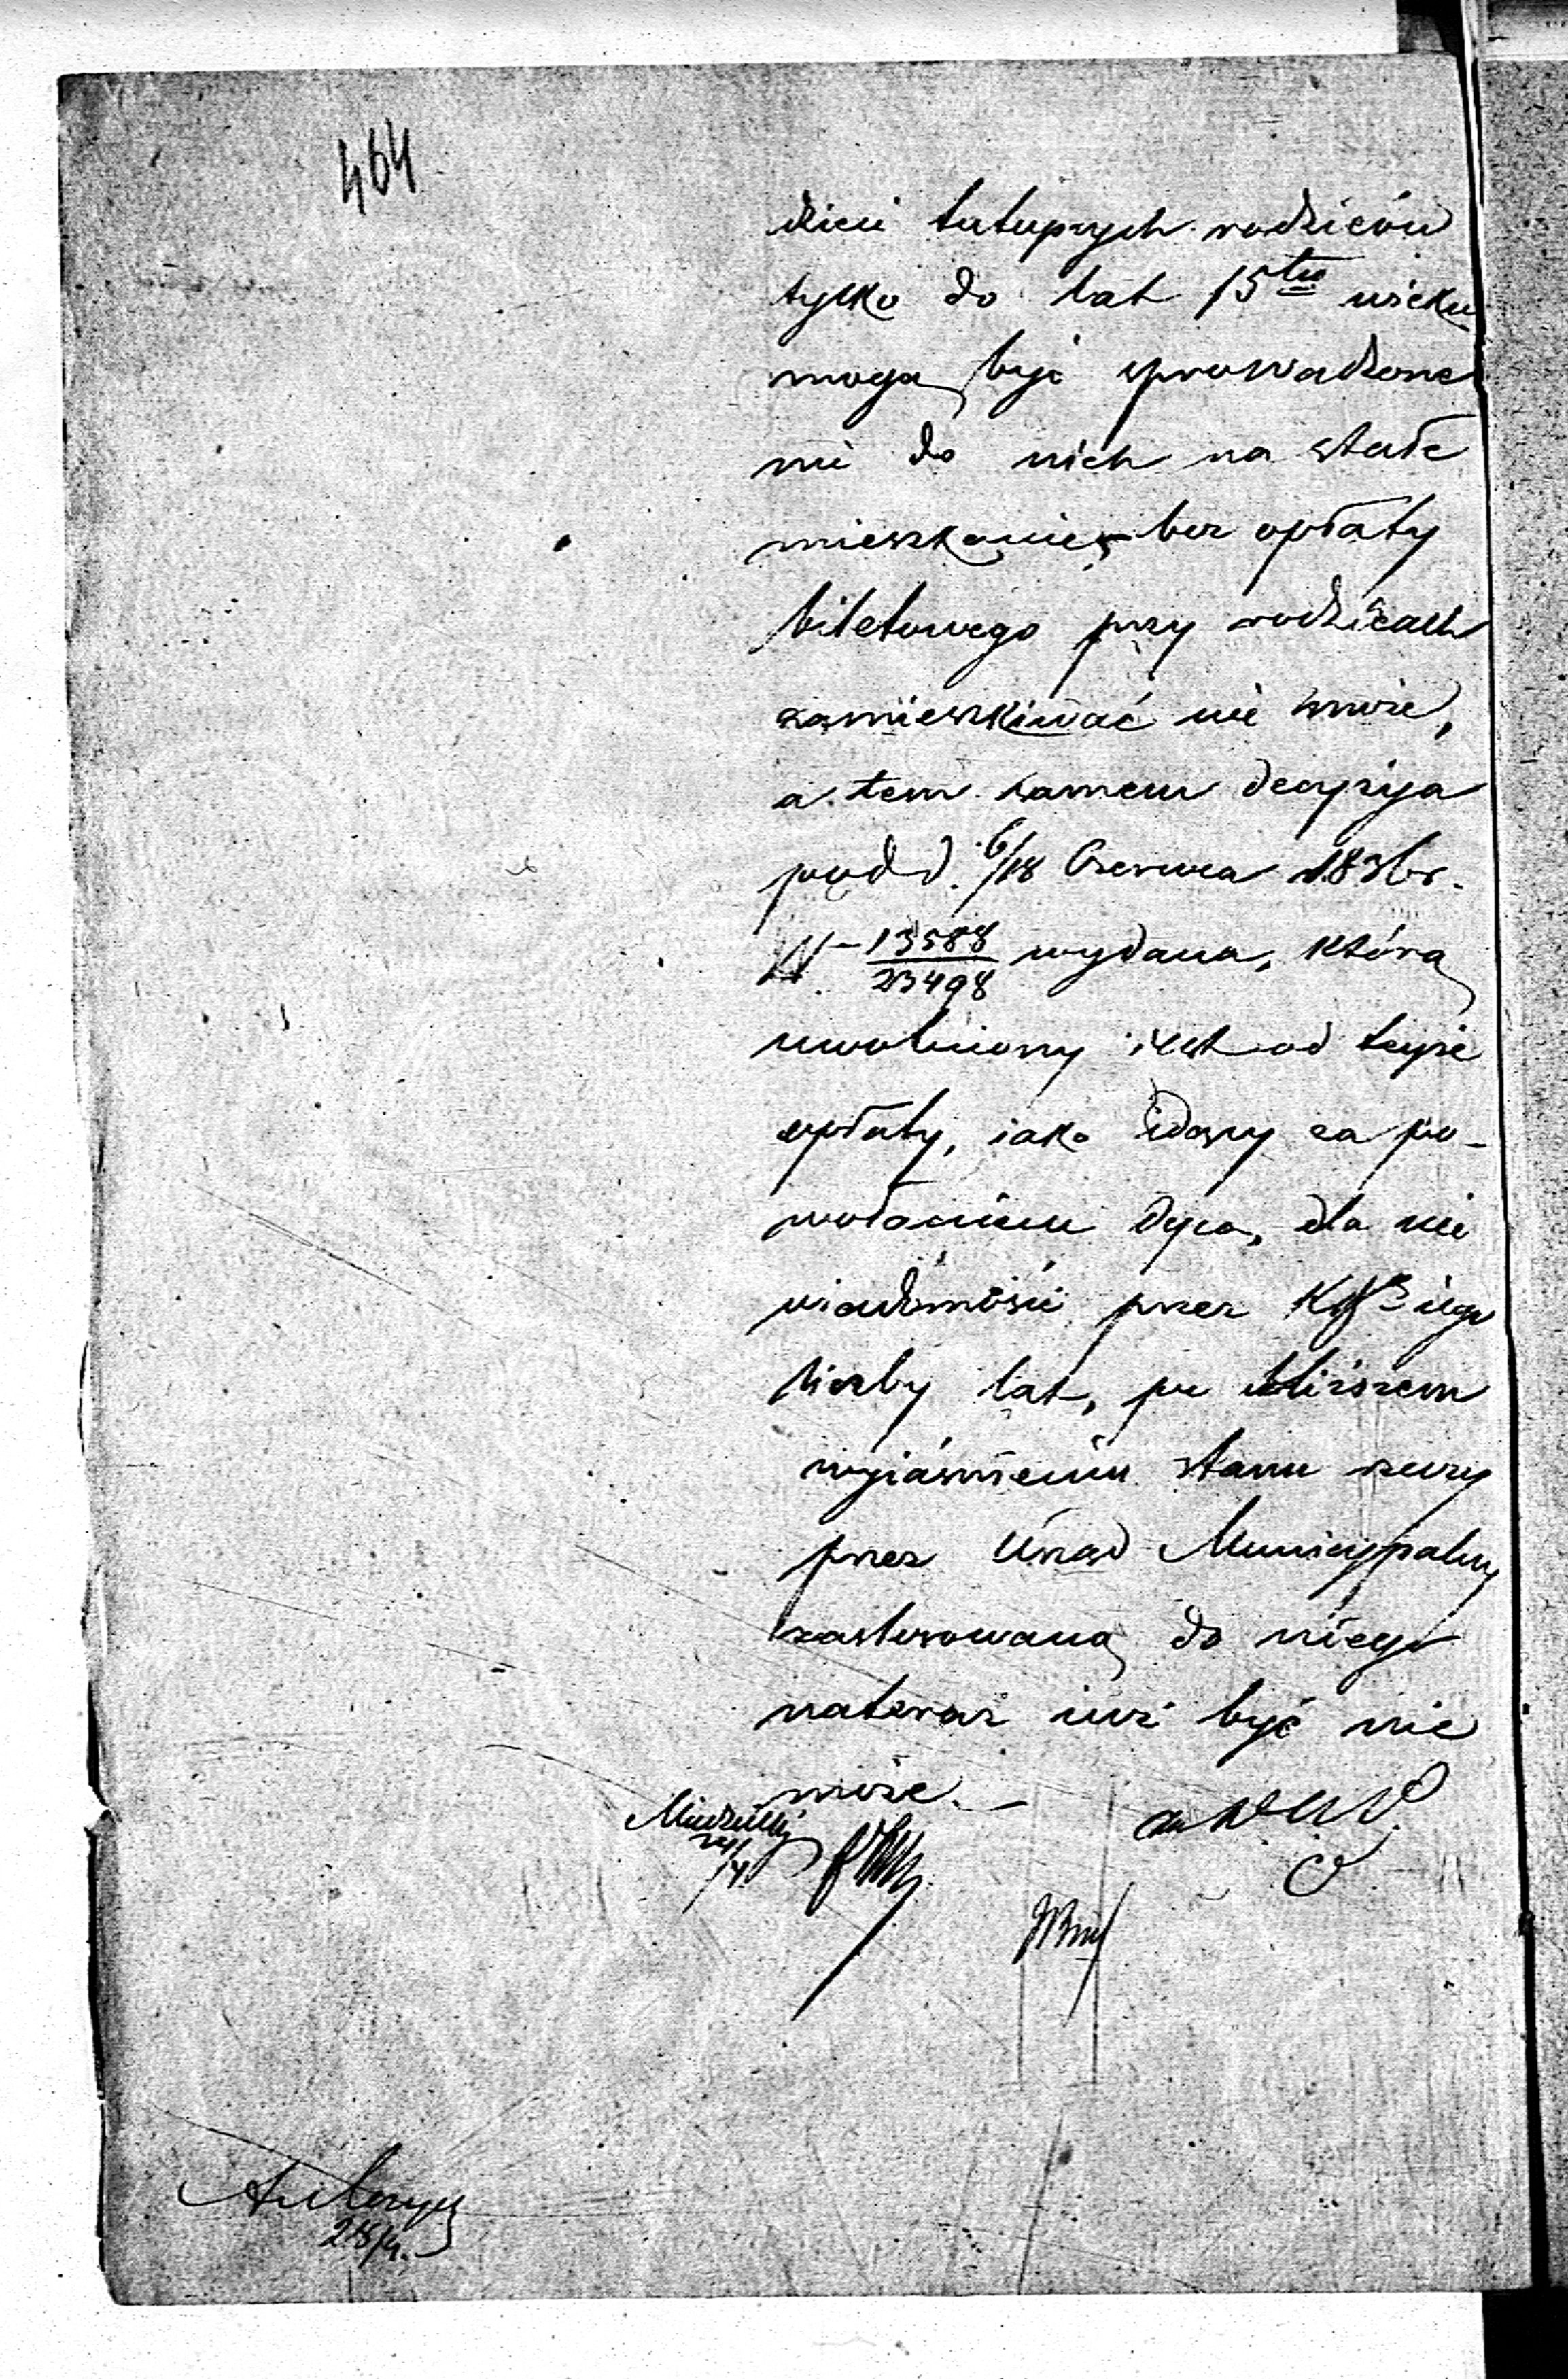 464
dzieci tutejszych rodziców
tylko do lat 15tu wieku
mogą być sprowadzone
mi do nich na stałe
mieszkanie, bez opłaty
biletowego przy rodzicach
zamieszkiwać nie może,
a tem samem decyzija
pod d. 6/18 Czerwca 1836 r.
N. 13588/23498 wydana, którą
uwolniony iest od teyże
opłaty, iako idący za po-
wołaniem Oyca, dla nie
wiadomości przez iego
liczby lat, po bliższem
wyiaśnieniu stanu rzeczy
przez Urząd Municypalny
zastosowaną do niego
nateraz iuż być nie
może.
24/4
28/4.